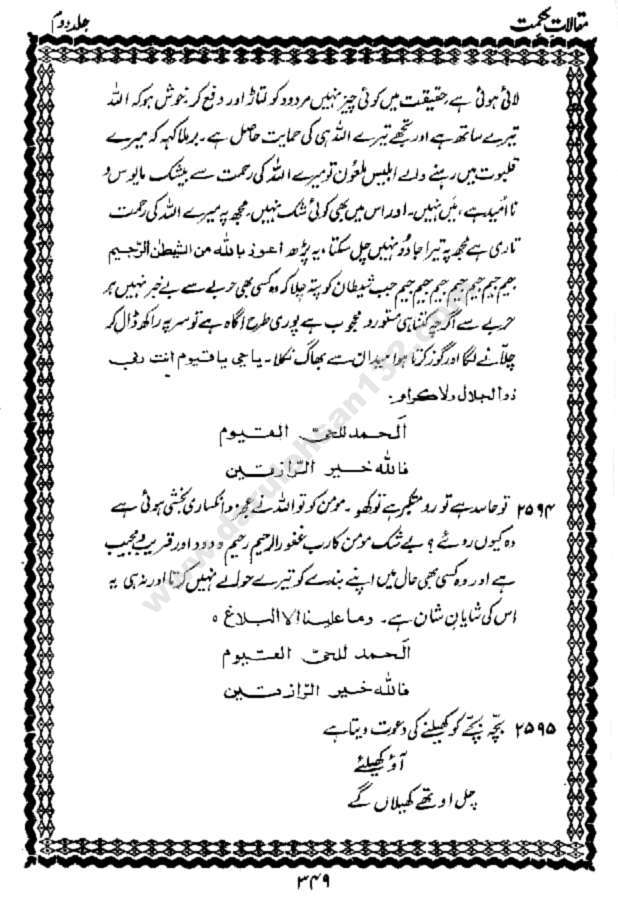 مقالاتِ حکمت
جلد دوم
لائی ہوئی ہے حقیقت میں کوئی چیز نہیں مردود کو لتاڑ اور دفع کر خوش ہو کہ اللہ
تیرے ساتھ ہے اور تجھے تیرے اللہ ہی کی حمایت حاصل ہے۔ برملا کہہ کہ میرے
قلبوت میں رہنے والے ابلیس ملعُون تو میرے اللہ کی رحمت سے بیشک مایوس و
نا اُمید ہے، مَیں نہیں۔ اور اس میں بھی کوئی شک نہیں۔ مجھ پہ میرے اللہ کی رحمت
تاری ہے مجھ پہ تیرا جادُو نہیں چل سکتا، یہ پڑھ اعوذ باللہ من الشیطٰن الرّجیم
جیم جیم جیم جیم جیم جیم جیم جب شیطان کو پتہ چلا کہ وہ کسی بھی حربے سے بے خبر نہیں ہر
حربے سے اگرچہ کتنا ہی مستور و محجوب ہے پوری طرح آگاہ ہے تو سر پہ راکھ ڈال کر
چلّانے لگا اور گوز کرتا ہوا میدان سے بھاگ نکلا۔ یا حی یا قیوم انت ربی
ذوالجلال ولاکرام۔
اَلحمد للحیّ القیوم
فاللہ خیر الرّازقین
۲۵۹۴ تو حاسد ہے تو رو متکبر ہے تو کھو۔ مومن کو تو اللہ نے عجز و انکساری بخشی ہوئی ہے
وہ کیوں روئے؟ بے شک مومن کا رب غفور الرحیم رحیم ودود اور قریب و مجیب
ہے اور وہ کسی بھی حال میں اپنے بندے کو تیرے حوالے نہیں کرتا اور نہ ہی یہ
اس کی شایانِ شان ہے۔ وما علینا الا البلاغ ٥
اَلحمد للحیّ القیوم
فاللہ خیر الرّازقین
۲۵۹۵ بچّہ بچّے کو کھیلنے کی دعوت دیتا ہے
آؤ کھیلئے
چل اوتھے کھیلاں گے
۳۴۹
www.darulehsan132.com